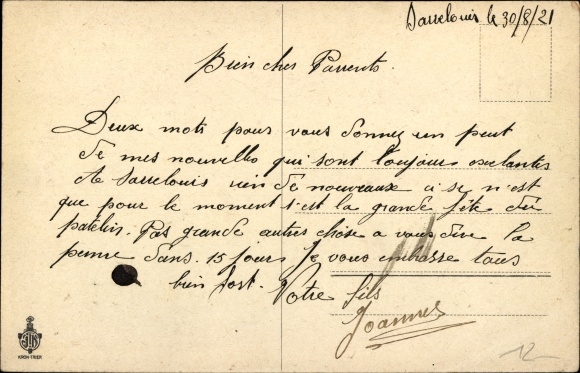 Sarrelouis le 30/8/21
Bien cher Parrents.
Deux mots pour vous donnez un peut
de mes nouvelles qui sont toujours exelantes
A Sarrelouis rien de nouveaux si se n'est
que pour le moment s'est la grande fête du
patelin. Pas grande autres chose a vous dire la
perme dans 15 jours Je vous embrasse tous
bien fort. Votre fils
Joannes
KRON-TRIER
12